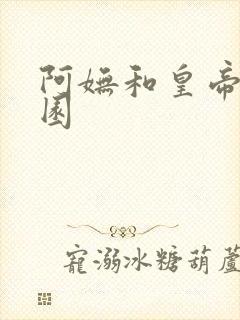 阿嫵和皇帝
園
寵溺冰糖葫蘆